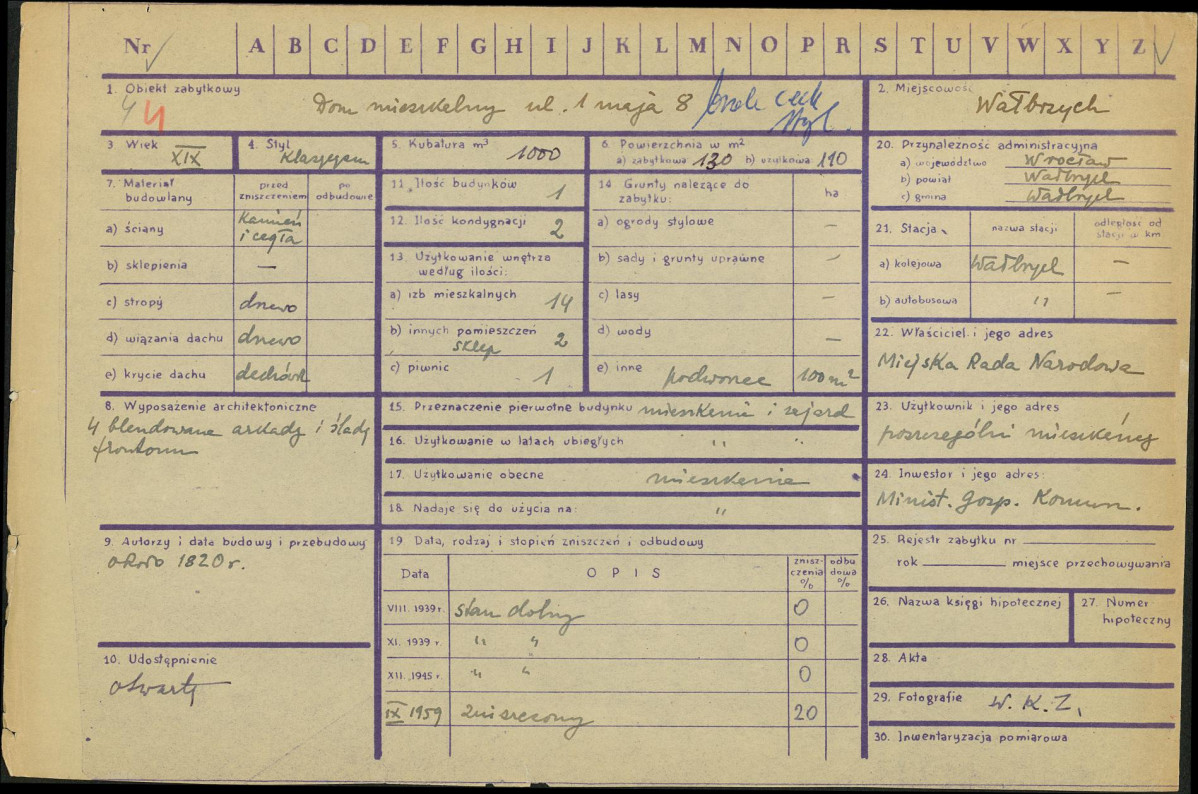 Nr A B C D E F G H I J K L M N O P R S T U V W X Y Z
1. Obiekt zabytkowy
4 4 Dom mieszkalny ul. 1 maja 8 brak cech styl.
2. Miejscowość
Wałbrzych
3 Wiek XIX
4. Styl Klasycyzm
5. Kubatura m³ 1000
6. Powierzchnia w m²
a) zabytkowa 130 b) użytkowa 110
20. Przynależność administracyjna
a) województwo Wrocław
b) powiat Wałbrzych
c) gmina Wałbrzych
7. Materiał budowlany
przed zniszczeniem
po odbudowie
a) ściany Kamień i cegła
b) sklepienia —
c) stropy drewo
d) wiązania dachu drewo
e) krycie dachu dachówk
11. Ilość budynków 1
12. Ilość kondygnacji 2
13. Użytkowanie wnętrza według ilości:
a) izb mieszkalnych 14
b) innych pomieszczeń 2
sklep
c) piwnic 1
14 Grunty należące do zabytku: ha
a) ogrody stylowe —
b) sady i grunty uprawne —
c) lasy —
d) wody —
e) inne podworzec 100 m²
21. Stacja nazwa stacji odległość od stacji w km
a) kolejowa Wałbrzych —
b) autobusowa " —
22. Właściciel i jego adres
Miejska Rada Narodowa
8. Wyposażenie architektoniczne
4 blendowane arkady i ślady frontonu
15. Przeznaczenie pierwotne budynku mieszkanie i zajazd
16. Użytkowanie w latach ubiegłych " "
17. Użytkowanie obecne mieszkanie
18. Nadaje się do użycia na: "
23. Użytkownik i jego adres
poszczególni mieszkańcy
24. Inwestor i jego adres:
Minist. Gosp. Komun.
9. Autorzy i data budowy i przebudowy
około 1820 r.
10. Udostępnienie
otwarty
19 Data, rodzaj i stopień zniszczeń i odbudowy
Data OPIS zniszczenia % odbudowa %
VIII. 1939 r. stan dobry 0
XI. 1939 r. " " 0
XII. 1945 r. " " 0
IX 1959 zniszczony 20
25. Rejestr zabytku nr
rok miejsce przechowywania
26. Nazwa księgi hipotecznej
27. Numer hipoteczny
28. Akta
29. Fotografie W. K. Z.
30. Inwentaryzacja pomiarowa